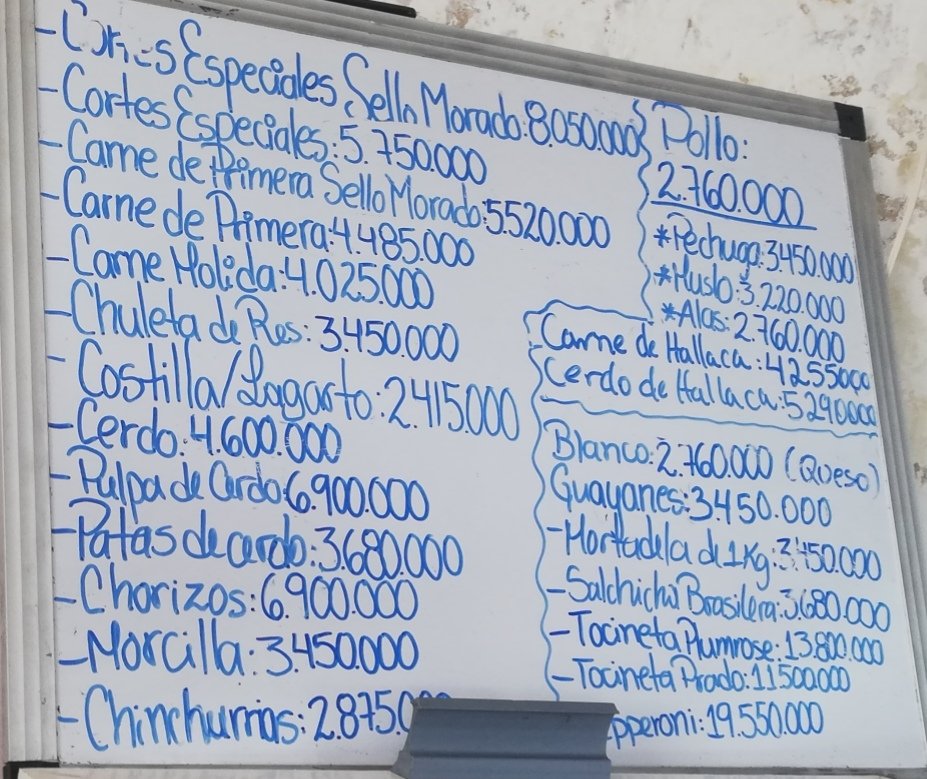 -Cortes Especiales Sello Morado: 8.050.000
-Cortes Especiales: 5.750.000
-Carne de Primera Sello Morado: 5520.000
-Carne de Primera: 4.485.000
-Carne Molida: 4.025.000
-Chuleta de Res: 3.450.000
-Costilla/Lagarto: 2.415.000
-Cerdo: 4.600.000
-Pulpa de Cerdo: 6.900.000
-Patas de cerdo: 3.680.000
-Chorizos: 6.900.000
-Morcilla: 3.450.000
-Chinchurrias: 2.875.0
Pollo:
2.760.000
*Pechuga: 3.450.000
*Muslo: 3.220.000
*Alas: 2.760.000
Carne de Hallaca: 4255000
Cerdo de Hallaca: 5290000
Blanco: 2.760.000 (Queso)
Guayanes: 3.450.000
-Mortadela de 1Kg: 3.450.000
-Salchicha Brasilera: 3.680.000
-Tocineta Plumrose: 13.800.000
-Tocineta Prado: 11.500.000
pperoni: 19.550.000